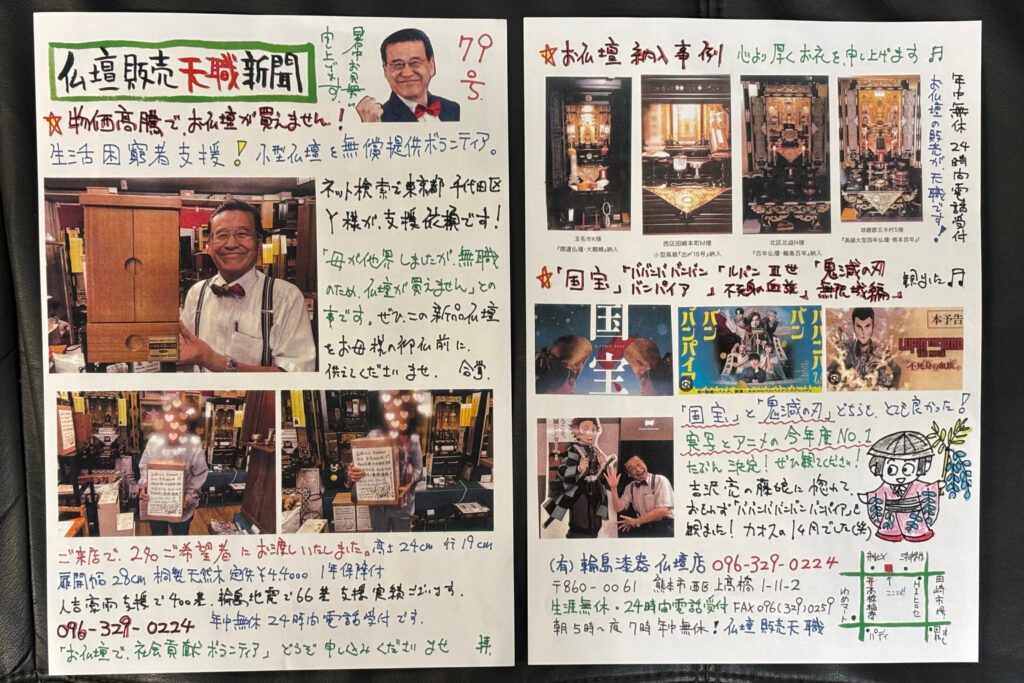 仏壇販売天職新聞
暑中お見舞い
申し上げます。
79
☆物価高騰でお仏壇が買えません!
生活困窮者支援!小型仏壇を無償提供ボランティア。
ネット検索で東京都千代田区
Y様が、支援依頼です!
「母が他界しましたが、無職
のため、仏壇が買えません」との
事です。ぜひ、この新品仏壇
をお母様の御仏前に、
供えてくださいませ。合掌。
ご来店で、2名ご希望者にお渡しいたしました。高さ24cm 行19cm
扉開幅28cm 桐製天然木 定価¥44000 1年保障付
人吉豪雨支援で400基、輪島地震で66基 支援実績ございます。
096-329-0224 年中無休24時間電話受付です。
「お仏壇で、社会貢献ボランティア」どうぞ申し込みくださいませ 拝.
☆お仏壇納入事例 心より厚くお礼を申し上げます♬
年中無休24時間電話受付
お仏壇の販売が、天職です!
玉名市K様
「開運仏壇・大鶴崎」納入
西区田崎本町M様
小型高級「出〆18号」納入
北区北迫N様
「百年仏壇・輪島百年」納入
球磨郡五木村S様
「高級大型百年仏壇・熊本百年」
☆「国宝」「ババンババンバンバンパイア」「ルパンⅢ世 不死身の血族」「鬼滅の刃 無限城編」観ました♬
国宝
バンババン
バンパイア
本予告
LUPIN THE IIIRD
THE MOVIE
"不死身の血族"
「国宝」と「鬼滅の刃」どちらも、とても良かった!
実写とアニメの今年度No.1
たぶん決定!ぜひ観てください!
吉沢亮の藤娘に惚れて、
おもわず「ババンババンバンバンパイア」も
観ました!カオスの1ヶ月でした(笑)
(有)輪島漆器仏壇店 096-329-0224
〒860-0061 熊本市西区上高橋1-11-2
生涯無休・24時間電話受付 FAX096(329)0259
朝5時~夜7時 年中無休!仏壇販売天職
田崎市場
高橋稲荷
ゆめマート